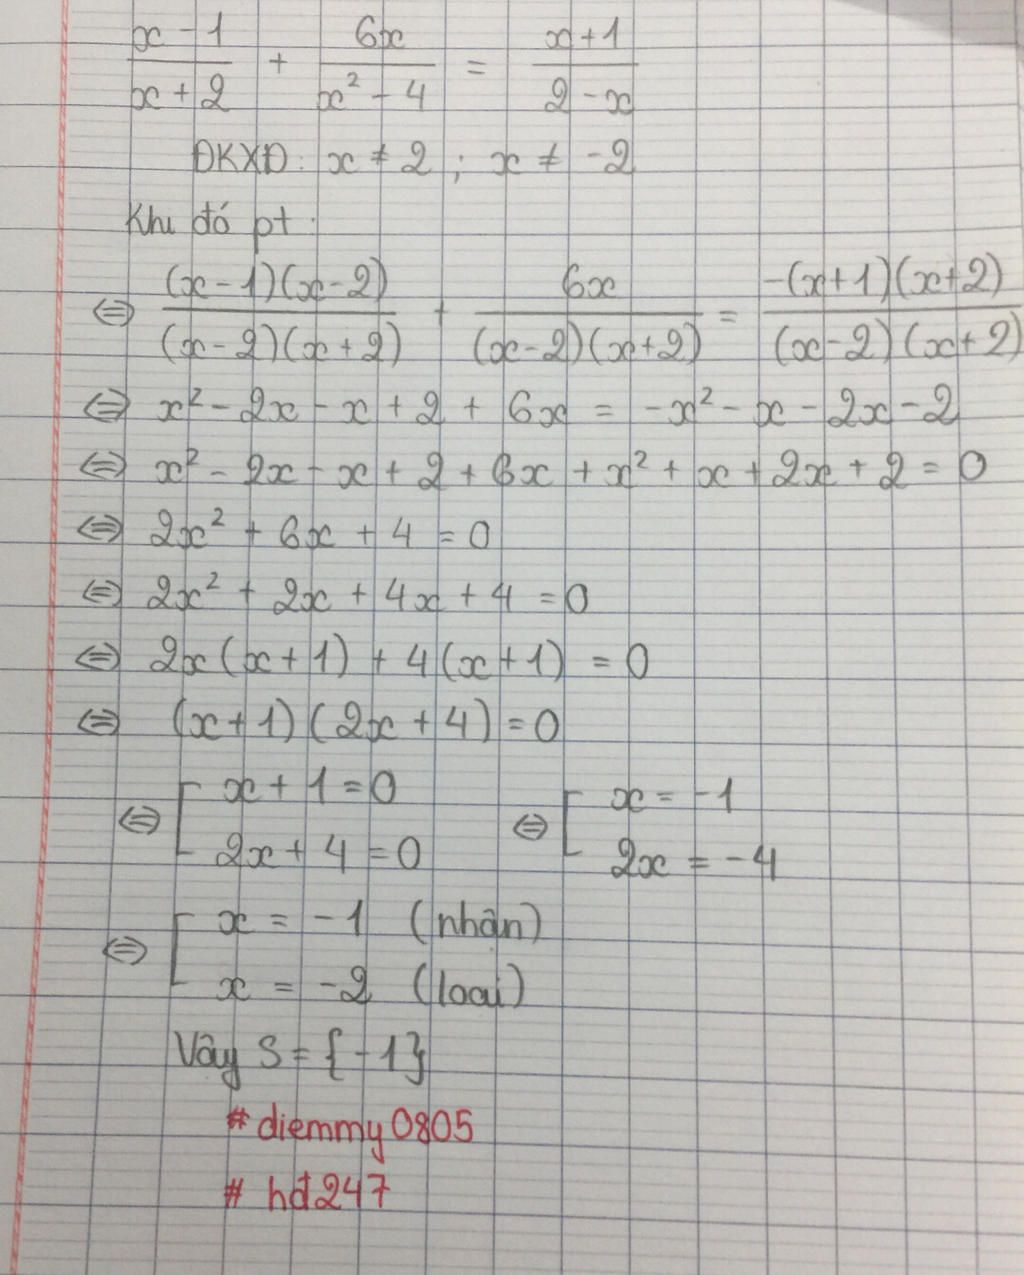 x - 1 / x + 2 + 6x / x² - 4 = x + 1 / 2 - x
ĐKXĐ: x ≠ 2 ; x ≠ -2
Khi đó pt:
⇔ (x - 1)(x - 2) / (x - 2)(x + 2) + 6x / (x - 2)(x + 2) = -(x + 1)(x + 2) / (x - 2)(x + 2)
⇔ x² - 2x - x + 2 + 6x = -x² - x - 2x - 2
⇔ x² - 2x - x + 2 + 6x + x² + x + 2x + 2 = 0
⇔ 2x² + 6x + 4 = 0
⇔ 2x² + 2x + 4x + 4 = 0
⇔ 2x(x + 1) + 4(x + 1) = 0
⇔ (x + 1)(2x + 4) = 0
⇔ [ x + 1 = 0 ⇔ [ x = -1
2x + 4 = 0 2x = -4
⇔ [ x = -1 (nhận)
x = -2 (loại)
Vậy S = {-1}
# diemmy0805
# hđ247